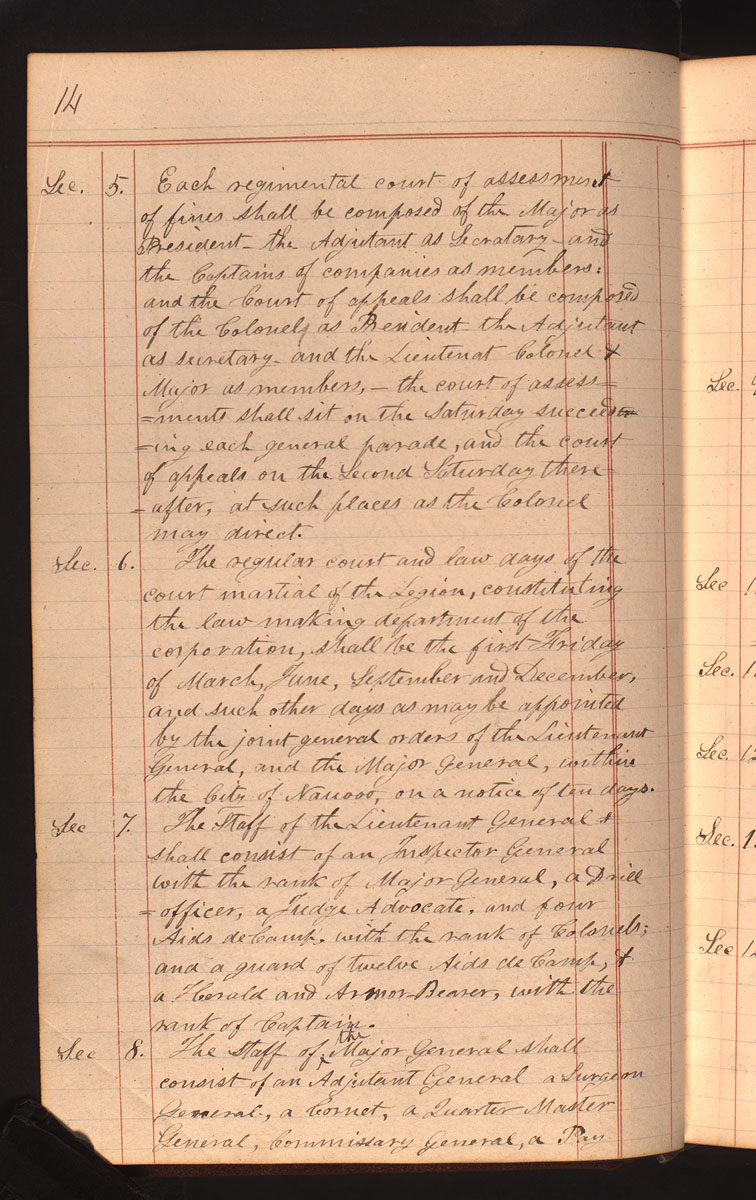 14
Sec. 5. Each regimental court of assessment
of fines shall be composed of the Major as
President – the Adjutant as Secratary – and
the Captains of companies as members:
and the Court of appeals shall be composed
of the Colonel as President the Adjutant
as secretary – and the Lieutenat Colonel &
Major as members, – the court of assess=
=ments shall sit on the Saturday succeed=
=ing each general parade, and the court
of appeals on the Second Saturday there
=after, at such places as the Colonel
may direct.
Sec. 6. The regular court and law days of the
court martial of the Legion, constituting
the law making department of the
corporation, shall be the first Friday
of March, June, September and December,
and such other days as may be appointed
by the joint general orders of the Lieutenant
General, and the Major General, within
the City of Nauvoo, on a notice of ten days.
Sec 7. The Staff of the Lieutenant General &
shall consist of an Inspector General
with the rank of Major General, a Drill
=officer, a Judge Advocate, and four
Aids de Camp, with the rank of Colonels;
and a guard of twelve Aids de Camp, &
a Herald and Armor-Bearer, with the
rank of Captain.
Sec 8. The Staff of the Major General shall
consist of an Adjutant General a Surgeon
General, a Cornet, a Quarter Master
General, Commissary General, a Pay
Sec.
Sec
Sec.
Sec.
Sec.
Sec